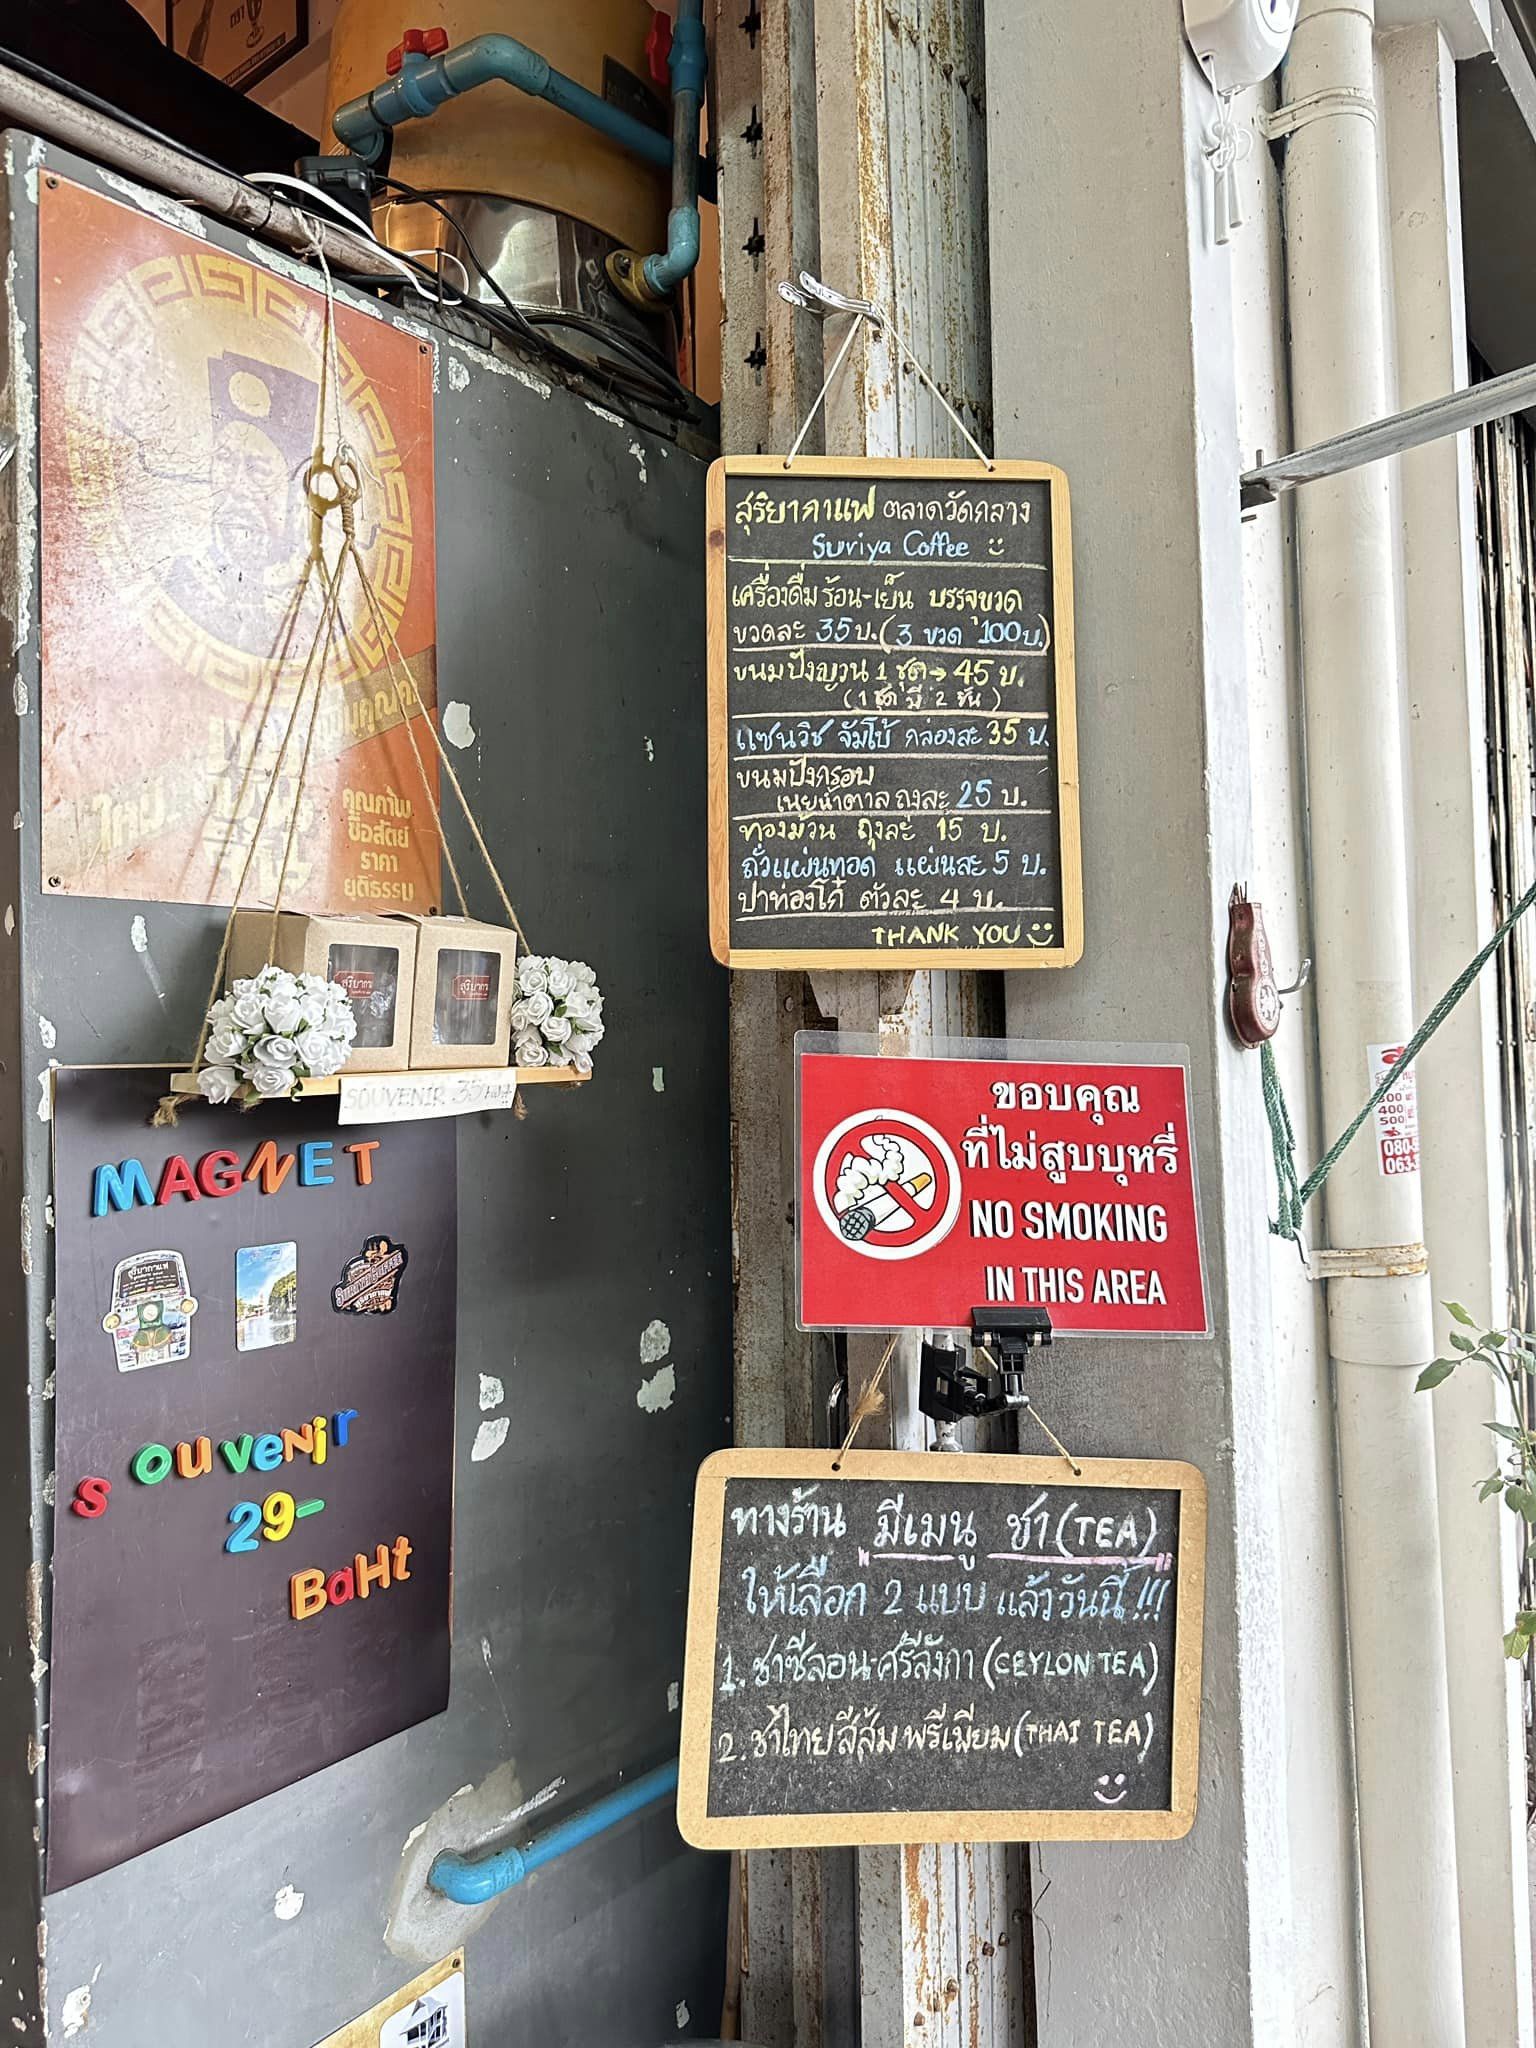 คุณภาพ
ซื่อสัตย์
ราคา
ยุติธรรม
สุริยากาแฟ ตลาดวัดกลาง
Suriya Coffee
เครื่องดื่ม ร้อน-เย็น บรรจุขวด
ขวดละ 35 บ. (3 ขวด 100 บ.)
ขนมปังญวน 1 ชุด → 45 บ.
(1 ชุด มี 2 ชิ้น)
แซนวิช จัมโบ้ กล่องละ 35 บ.
ขนมปังกรอบ
เนยน้ำตาล ถุงละ 25 บ.
ทองม้วน ถุงละ 15 บ.
ถั่วแผ่นทอด แผ่นละ 5 บ.
ปาท่องโก๋ ตัวละ 4 บ.
THANK YOU
SOUVENIR 35
MAGNET
สุริยากาแฟ
SURIYA COFFEE
souvenir
29-
BaHt
ขอบคุณ
ที่ไม่สูบบุหรี่
NO SMOKING
IN THIS AREA
ทางร้าน "มีเมนู ชา (TEA)"
ให้เลือก 2 แบบ แล้ววันนี้ !!!
1. ชาซีลอน-ศรีลังกา (CEYLON TEA)
2. ชาไทยสีส้ม พรีเมียม (THAI TEA)
400
500